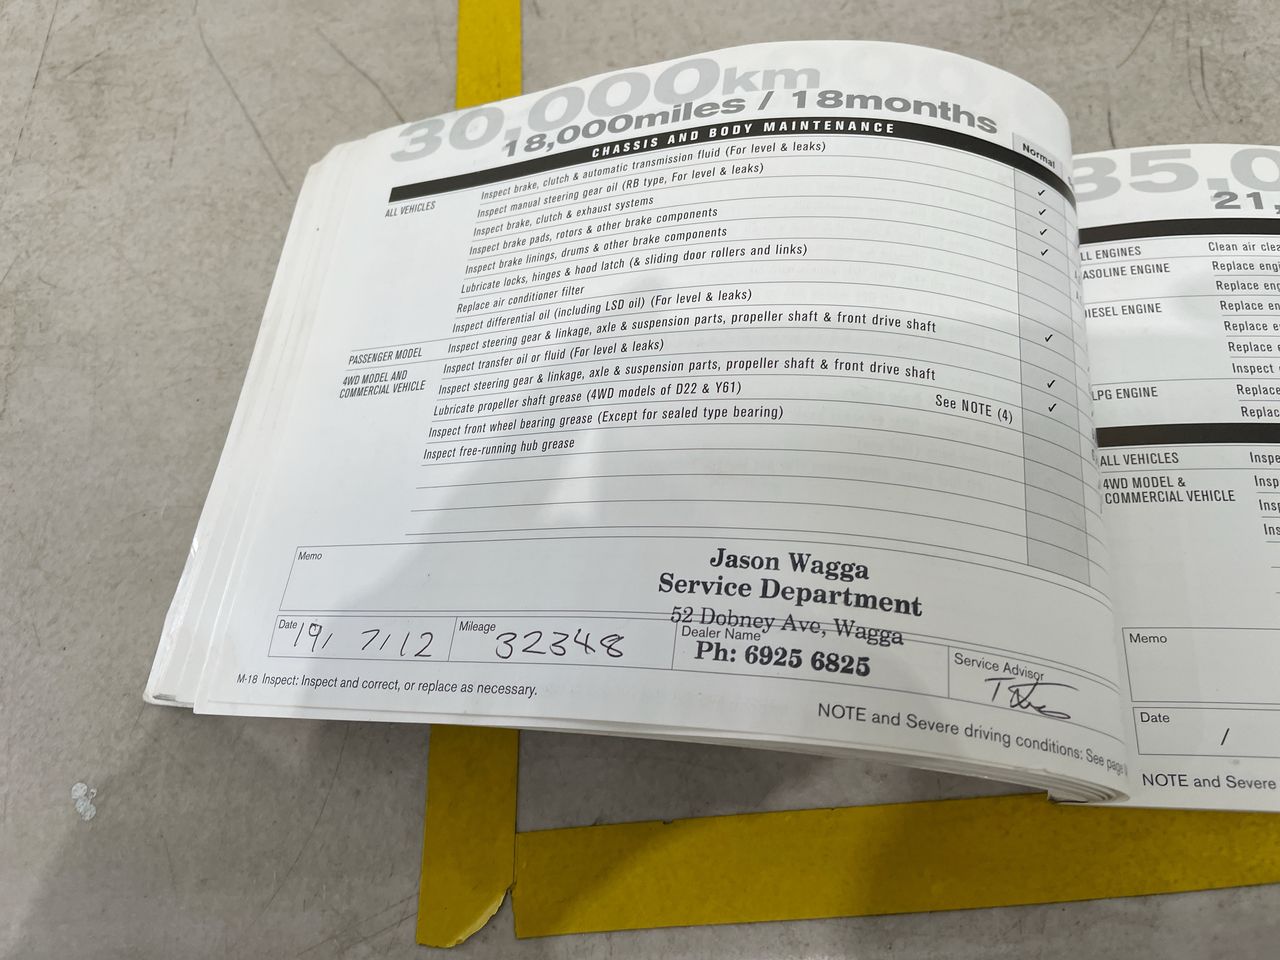 30,000km
18,000miles / 18months
CHASSIS AND BODY MAINTENANCE
Normal
ALL VEHICLES
Inspect brake, clutch & automatic transmission fluid (For level & leaks)
Inspect manual steering gear oil (RB type, For level & leaks)
Inspect brake, clutch & exhaust systems
Inspect brake pads, rotors & other brake components
Inspect brake linings, drums & other brake components
Lubricate locks, hinges & hood latch (& sliding door rollers and links)
Replace air conditioner filter
Inspect differential oil (including LSD oil) (For level & leaks)
PASSENGER MODEL
Inspect steering gear & linkage, axle & suspension parts, propeller shaft & front drive shaft
4WD MODEL AND
COMMERCIAL VEHICLE
Inspect transfer oil or fluid (For level & leaks)
Inspect steering gear & linkage, axle & suspension parts, propeller shaft & front drive shaft
Lubricate propeller shaft grease (4WD models of D22 & Y61)
Inspect front wheel bearing grease (Except for sealed type bearing) See NOTE (4)
Inspect free-running hub grease
Memo
Jason Wagga
Service Department
52 Dobney Ave, Wagga
Ph: 6925 6825
Date 19/ 7/12
Mileage 32348
Dealer Name
Service Advisor
M-18 Inspect: Inspect and correct, or replace as necessary.
NOTE and Severe driving conditions: See page
35,0
21,
LL ENGINES
Clean air clea
ASOLINE ENGINE
Replace engi
Replace eng
DIESEL ENGINE
Replace en
Replace e
Replace e
Inspect
LPG ENGINE
Replace
Replac
ALL VEHICLES
Inspe
4WD MODEL &
COMMERCIAL VEHICLE
Insp
Insp
Ins
Memo
Date /
NOTE and Severe